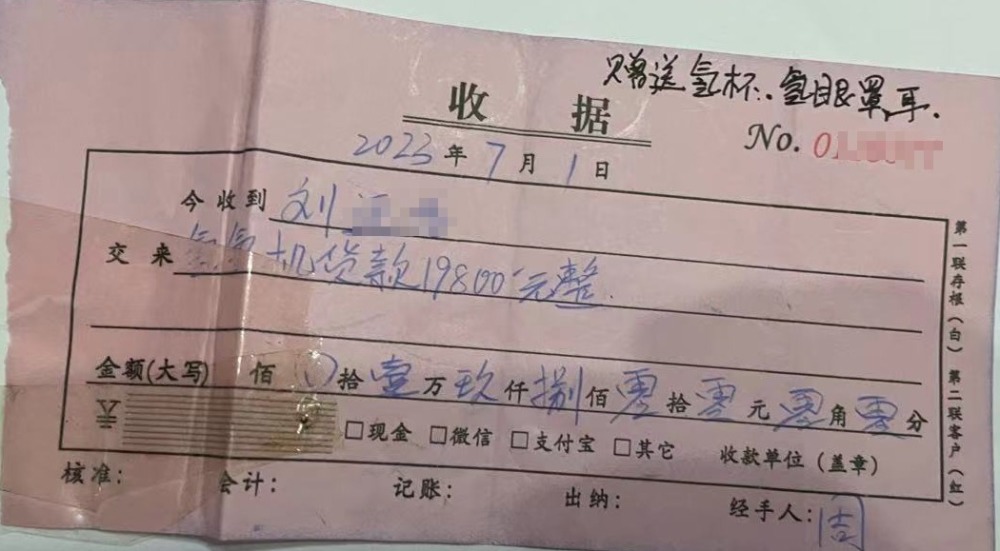 赠送氢杯. 氢眼罩耳.
收 据
No. 0
2023年7月1日
今收到 刘
交来 氢气机货款19800元整.
金额(大写) 佰 拾壹万玖仟捌佰零拾零元零角零分
□现金 □微信 □支付宝 □其它 收款单位（盖章）
核准： 会计： 记账： 出纳： 经手人：周
第一联存根（白） 第二联客户（红）